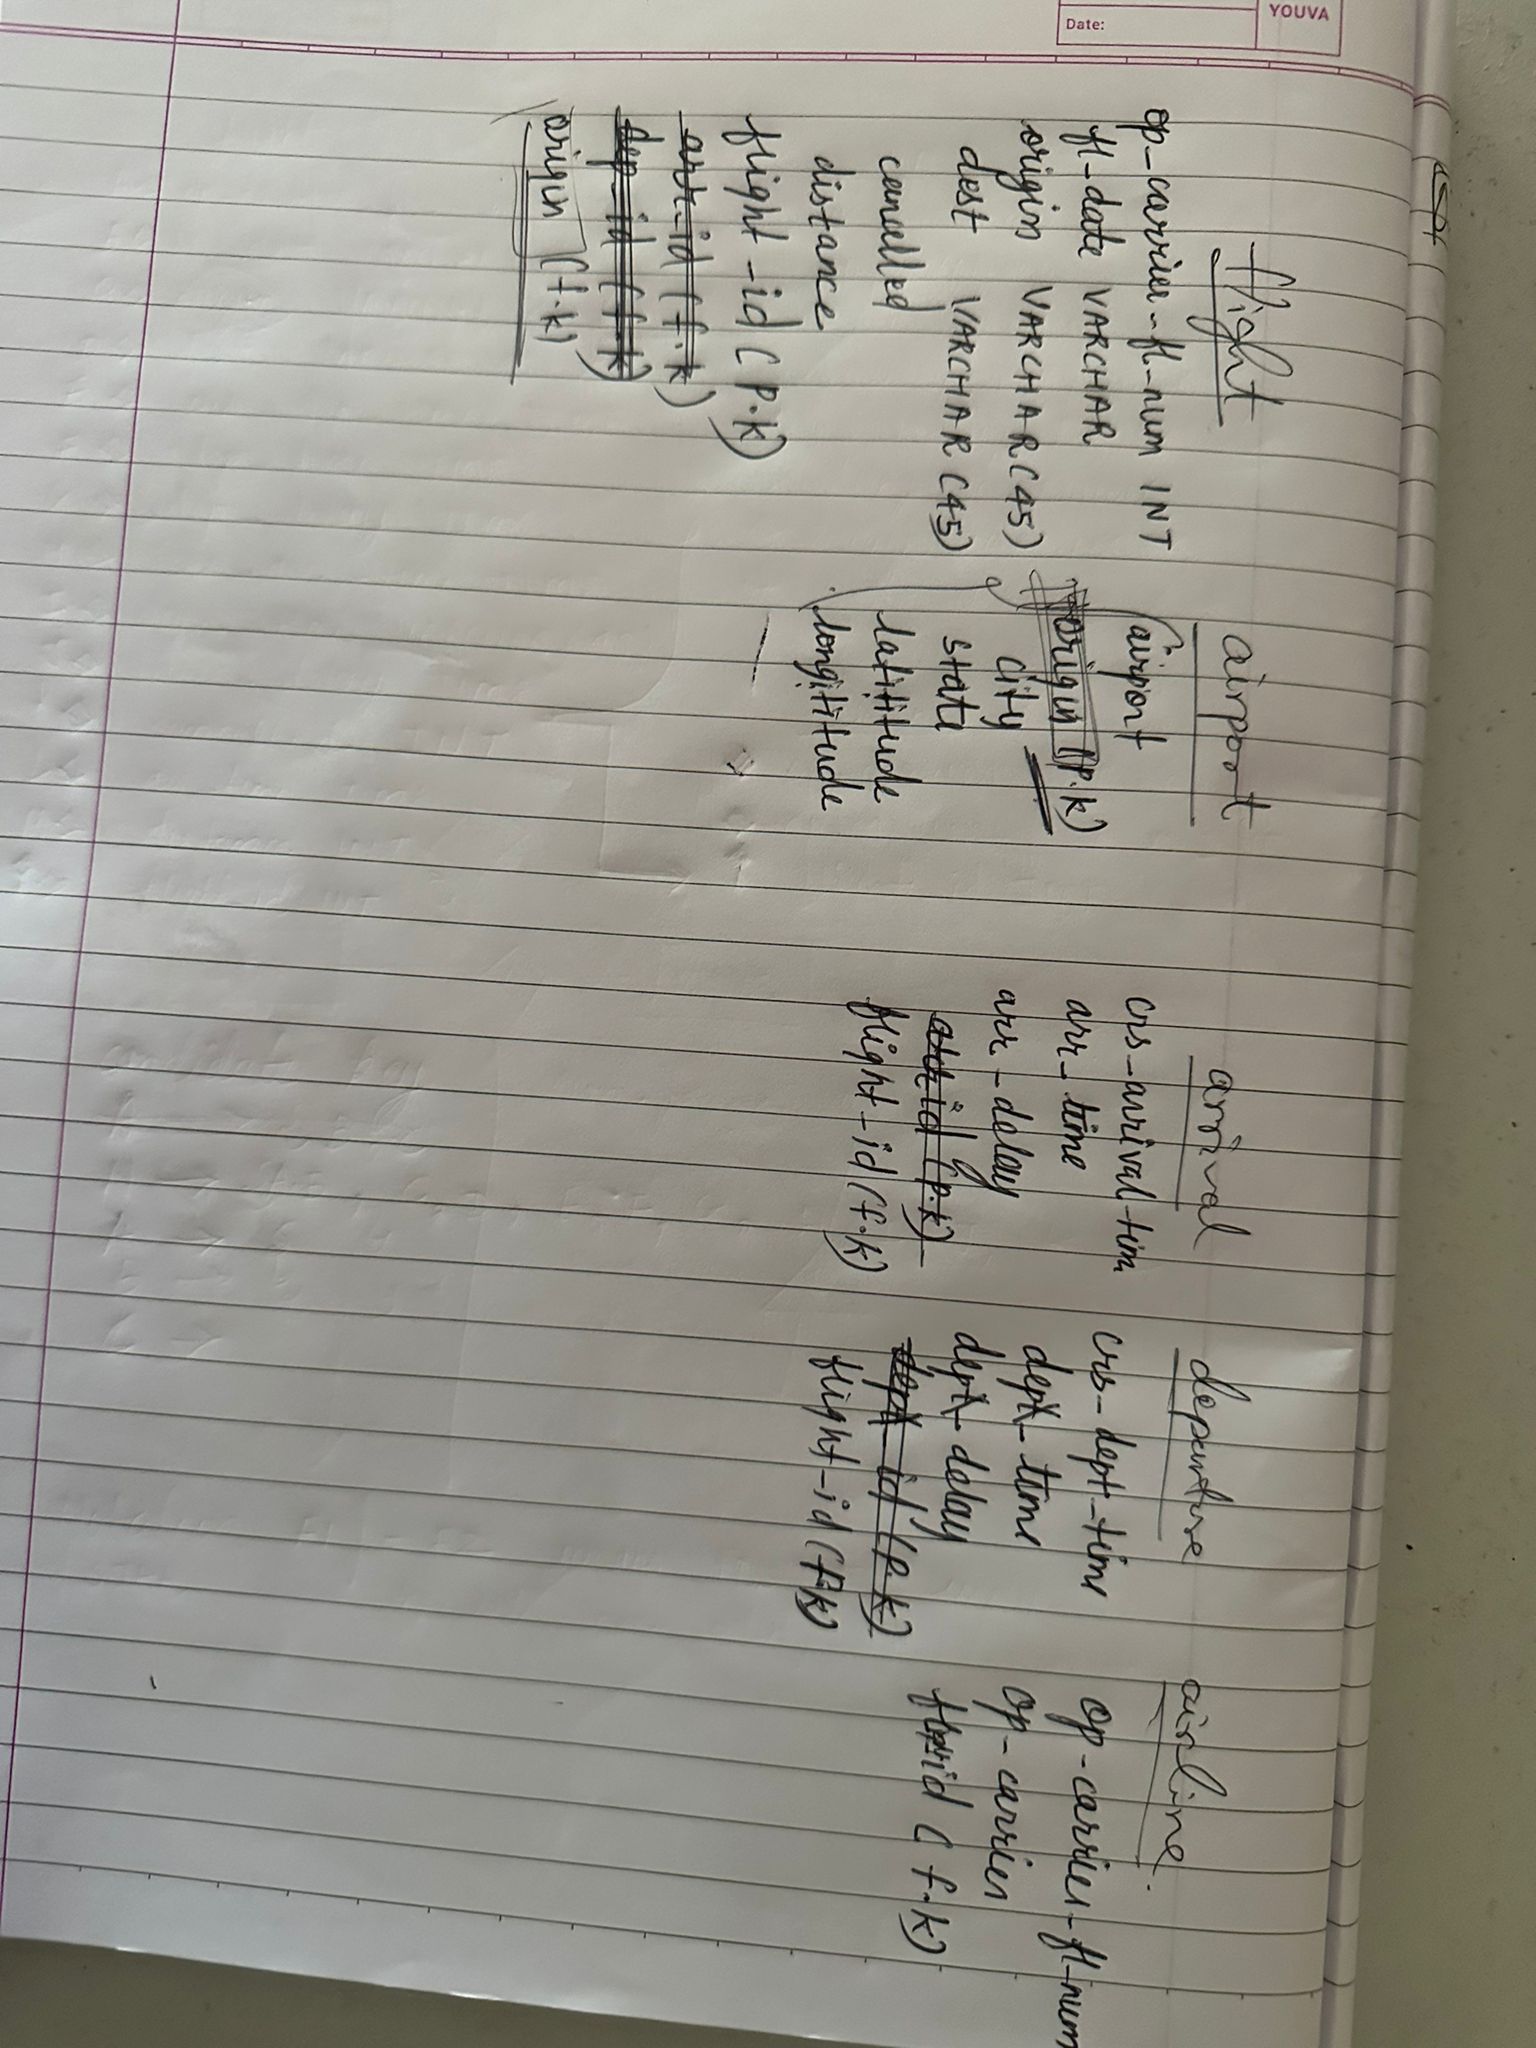 YOUVA
Date:
flight
op-carrier-fl-num INT
fl-date VARCHAR
origin VARCHAR(45)
dest VARCHAR(45)
cancelled
distance
flight-id (P.K)
arr-id (f.k)
dep-id (f.k)
origin (f.k)
airport
airport
origin (P.K)
city
state
latititude
longititude
arrival
crs-arrival-tim
arr-time
arr-delay
arr id (P.K)
flight-id (f.k)
departure
crs-dept-time
dept-time
dept-delay
dept-id (P.K)
flight-id (f.k)
airline.
op-carrier-fl-num
op-carrier
id (f.k)